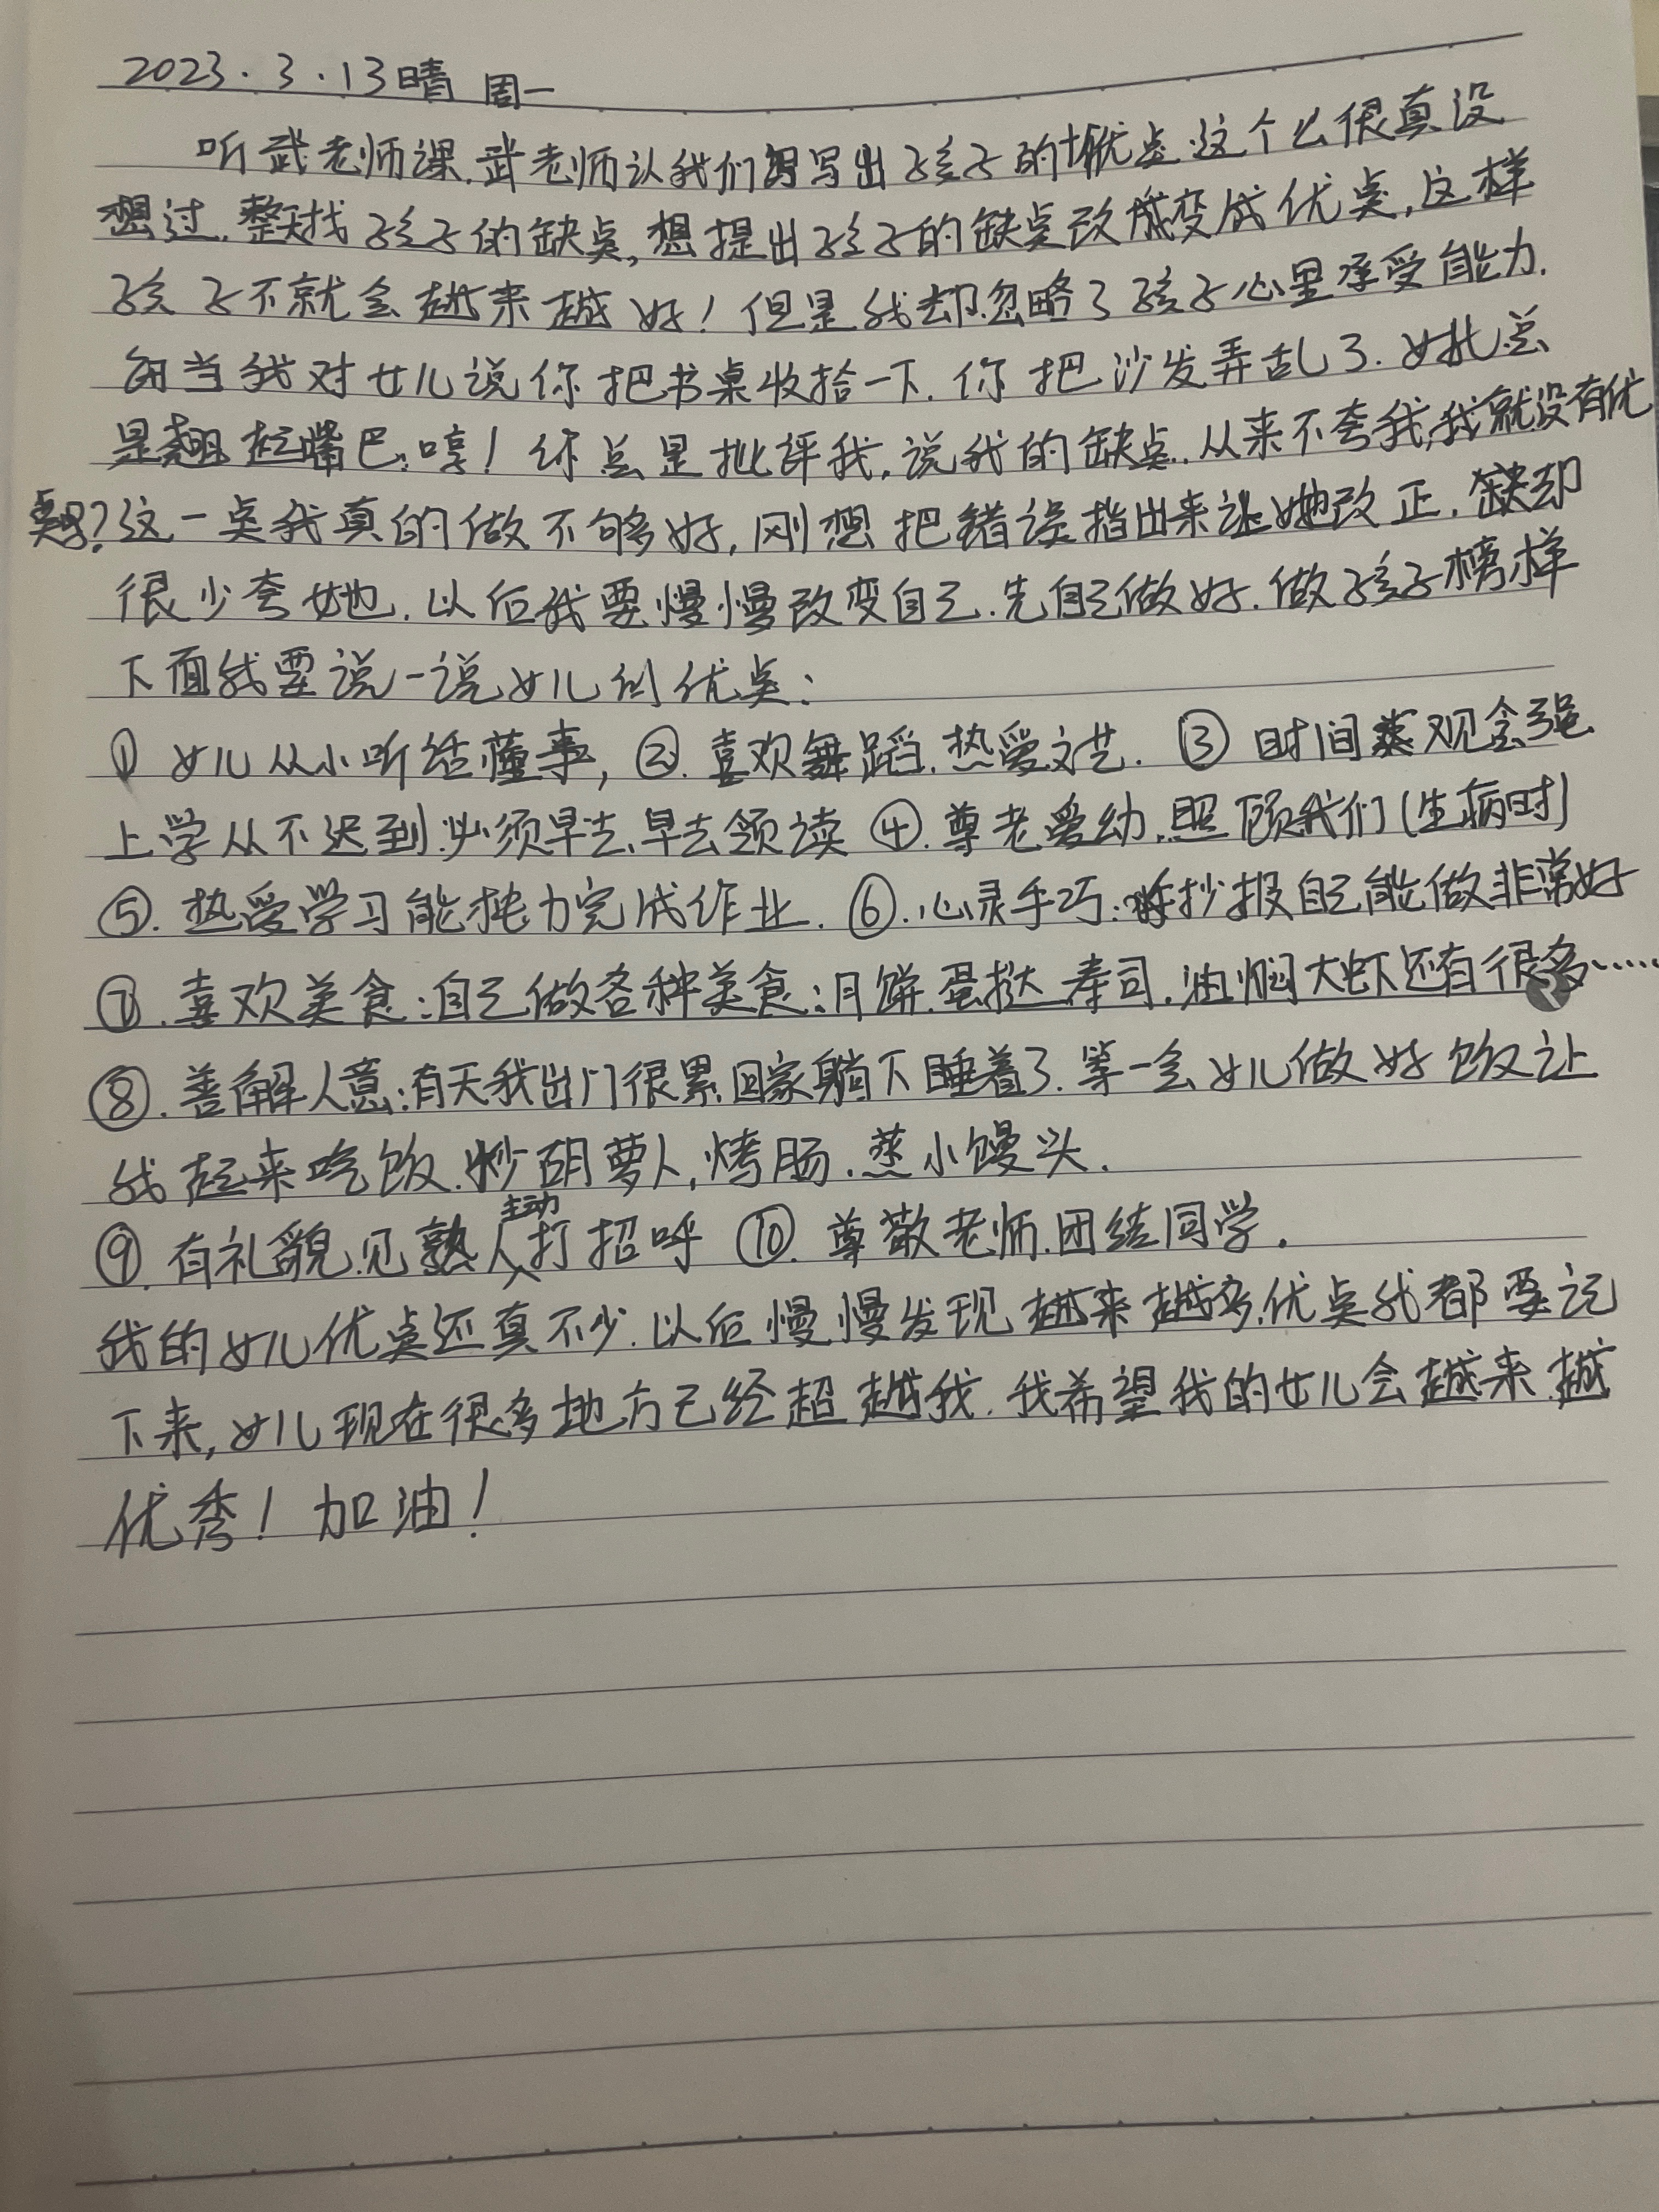 2023.3.13晴 周一
听武老师课.武老师认我们写出孩子的优点.这个么很真没
想过.整天找孩子的缺点,想提出孩子的缺点改变成优点,这样
孩子不就会越来越好!但是我却忽略了孩子心里承受能力.
每当我对女儿说你把书桌收拾一下.你把沙发弄乱了.她总
是翘起嘴巴:哼!你总是批评我,说我的缺点.从来不夸我,我就没有优
点吗?这一点我真的做不够好,刚想把错误指出来让她改正.缺却
很少夸她.以后我要慢慢改变自己.先自己做好.做孩子榜样
下面我要说一说女儿的优点:
① 女儿从小听话懂事,②.喜欢舞蹈.热爱文艺.③ 时间观念强
上学从不迟到.必须早去、早去领读 ④.尊老爱幼,照顾我们(生病时)
⑤.热爱学习能独力完成作业.⑥.心灵手巧:手抄报自己能做非常好
⑦.喜欢美食:自己做各种美食:月饼.蛋挞.寿司.油焖大虾还有很多……
⑧.善解人意:有天我出门很累.回家躺下睡着了.等一会女儿做好饭让
我起来吃饭.炒胡萝卜,烤肠.蒸小馒头.
⑨.有礼貌.见熟人主动打招呼 ⑩.尊敬老师.团结同学.
我的女儿优点还真不少.以后慢慢发现越来越多.优点我都要记
下来,女儿现在很多地方已经超越我.我希望我的女儿会越来越
优秀!加油!